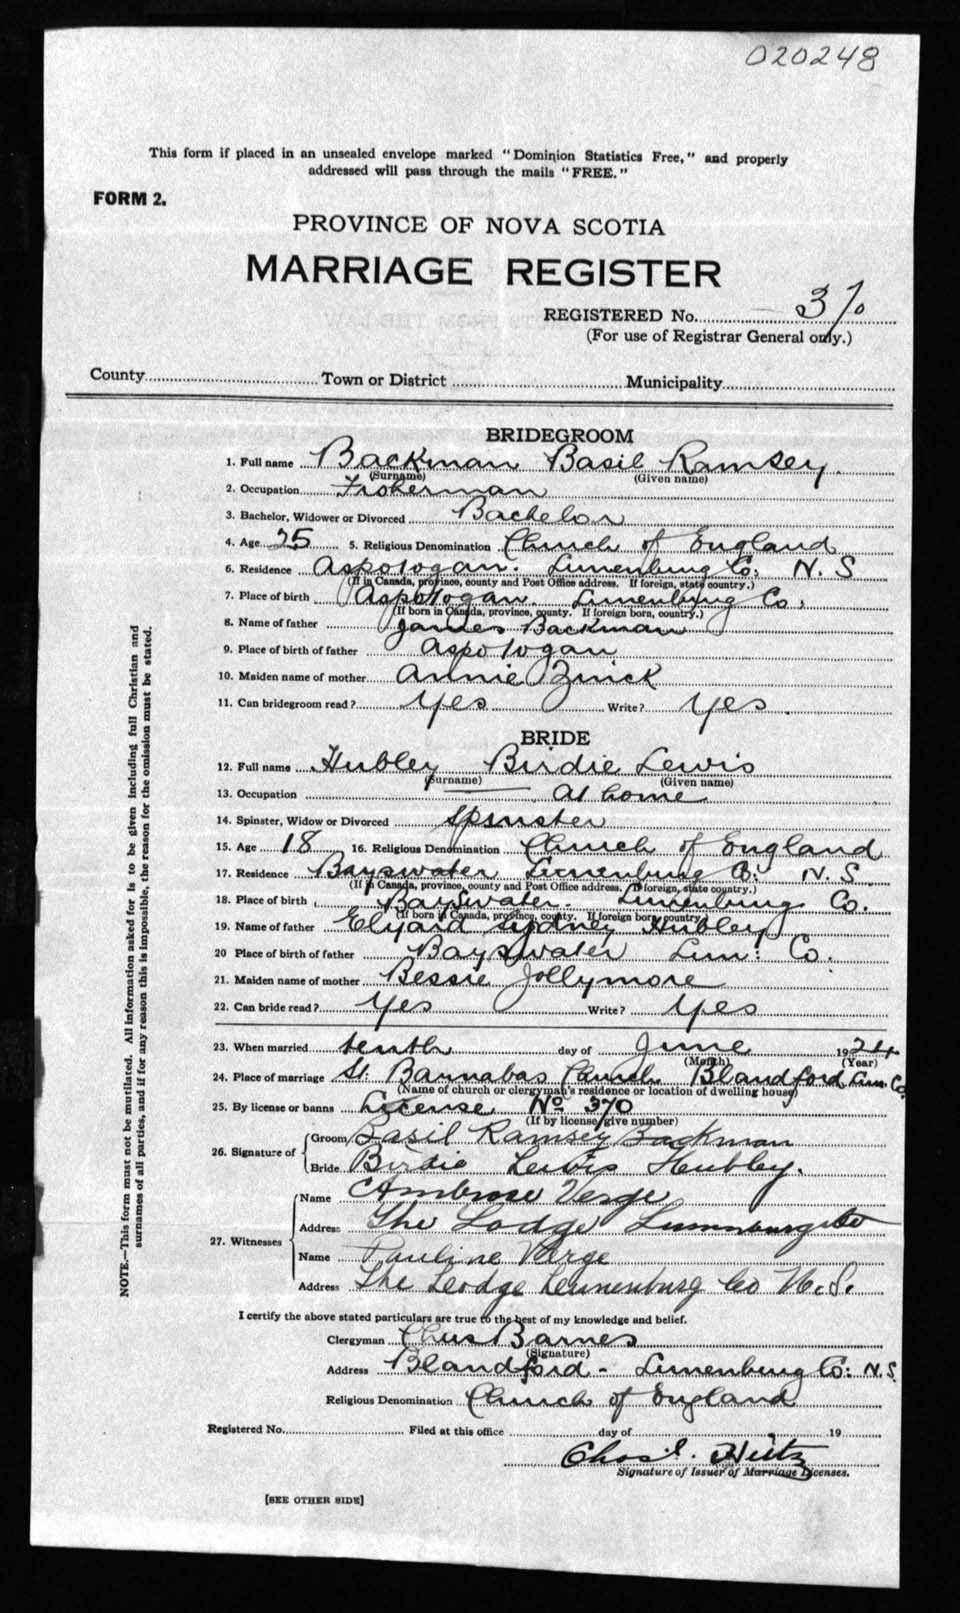 020248
This form if placed in an unsealed envelope marked "Dominion Statistics Free," and properly
addressed will pass through the mails "FREE."
FORM 2.
PROVINCE OF NOVA SCOTIA
MARRIAGE REGISTER
REGISTERED No. 370
(For use of Registrar General only.)
County Town or District Municipality
BRIDEGROOM
1. Full name Backman Basil Ramsey.
(Surname) (Given name)
2. Occupation Fisherman
3. Bachelor, Widower or Divorced Bachelor
4. Age 25 5. Religious Denomination Church of England
6. Residence Aspotogan. Lunenburg Co: N. S
(If in Canada, province, county and Post Office address. If foreign, state country.)
7. Place of birth Aspotogan. Lunenburg Co.
(If born in Canada, province, county. If foreign born, country.)
8. Name of father James Backman
9. Place of birth of father Aspotogan
10. Maiden name of mother Annie Zinck
11. Can bridegroom read? Yes Write? Yes.
BRIDE
12. Full name Hubley Birdie Lewis
(Surname) (Given name)
13. Occupation At home
14. Spinster, Widow or Divorced Spinster
15. Age 18 16. Religious Denomination Church of England
17. Residence Bayswater Lunenburg Co: N. S.
(If in Canada, province, county and Post Office address. If foreign, state country.)
18. Place of birth Bayswater. Lunenburg Co.
(If born in Canada, province, county. If foreign born country.)
19. Name of father Elyard Sydney Hubley
20 Place of birth of father Bayswater Lun: Co.
21. Maiden name of mother Bessie Jollymore
22. Can bride read? Yes Write? Yes
23. When married tenth day of June 1924
(Month) (Year)
24. Place of marriage St. Barnabas Church Blandford Lun. Co.
(Name of church or clergyman's residence or location of dwelling house)
25. By license or banns License No 370
(If by license, give number)
26. Signature of Groom Basil Ramsey Backman
Bride Birdie Lewis Hubley.
27. Witnesses Name Ambrose Verge
Address The Lodge Lunenburg Co
Name Pauline Verge
Address The Lodge Lunenburg Co N.S.
I certify the above stated particulars are true to the best of my knowledge and belief.
Clergyman Chas Barnes
(Signature)
Address Blandford - Lunenburg Co: N.S.
Religious Denomination Church of England
Registered No. Filed at this office day of 19
Chas. Hiltz
Signature of Issuer of Marriage Licenses.
[SEE OTHER SIDE]
NOTE.—This form must not be mutilated. All information asked for is to be given including full Christian and
surnames of all parties, and if for any reason this is impossible, the reason for the omission must be stated.